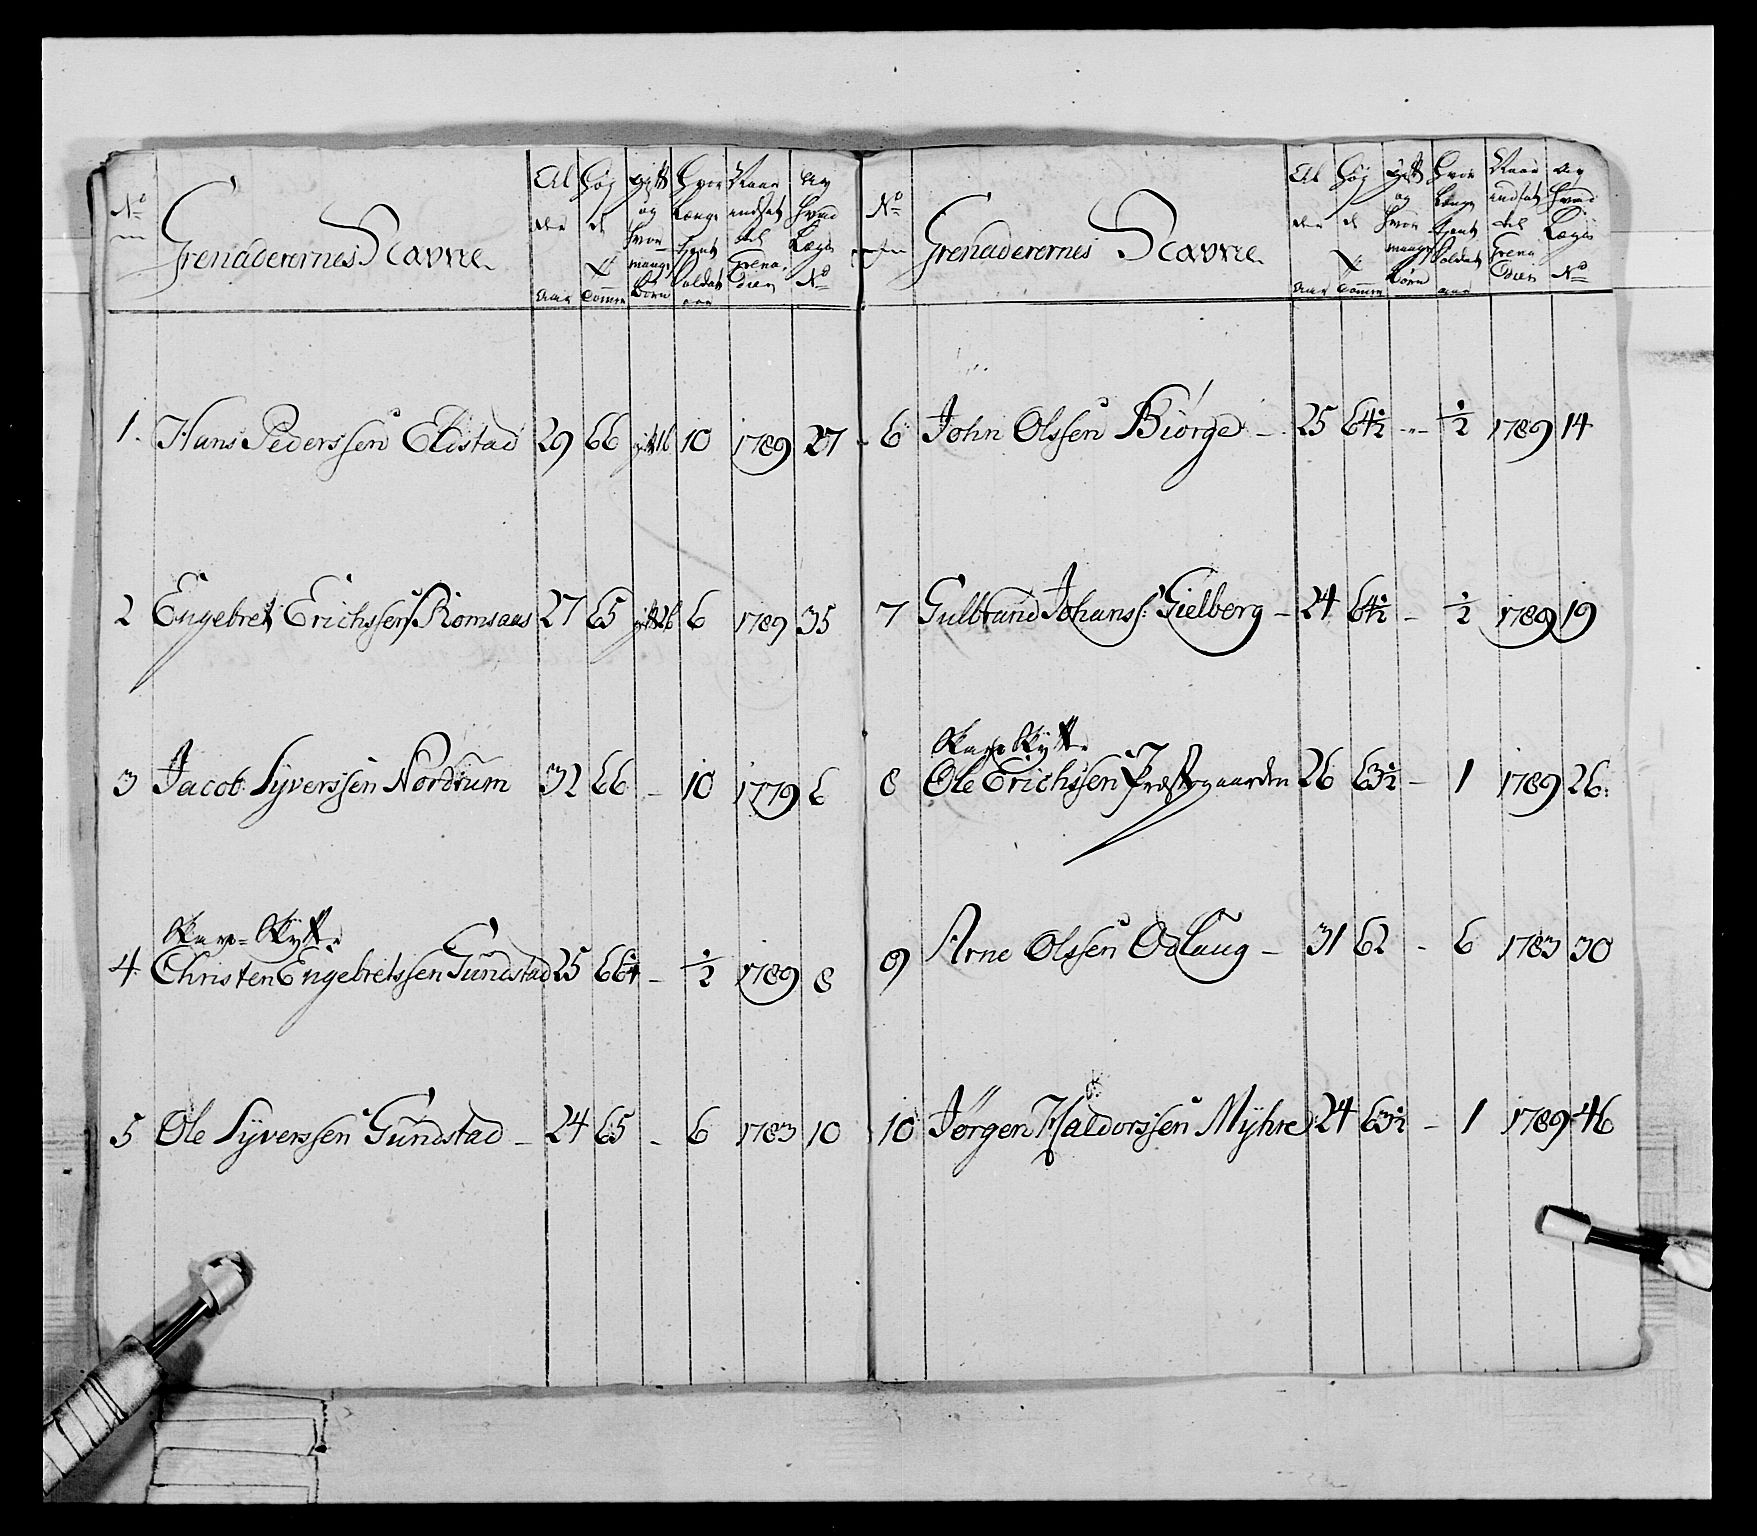 No
Grenaderernes Navne
Al der Aar
Høy de Tommer
gift og hvor mange Børn
Hvor Længe tient Soldat aar
Naar indsat ved Grena dien
Av hvad Lægd No
1. Hans Pederssen Elistad 29 66 gift 1b 10 1789 27
2 Engebret Erichssen Romsaas 27 65 gift 2b 6 1789 35
3 Jacob Syverssen Nordrum 32 66 - 10 1779 6
Skarp-Skytt.
4. Christen Engebretssen Gundstad 25 66¼ - ½ 1789 8
5 Ole Syverssen Gundstad - 24 65 - 6 1783 10
No
Grenaderernes Navne
Al der Aar
Høy de Tommer
Gift og hvor mange Børn
Hvor Længe tient Soldat aar
Naar indsat ved Grena dien
Av hvad Lægd No
6 John Olssen Biørge - 25 64½ - ½ 1789 14
7 Gulbrand Johanss: Gielberg - 24 64½ - ½ 1789 19
Skarp Skytt.
8 Ole Erichssen Præstegaarden 26 63½ - 1 1789 26.
9 Arne Olssen Odlaug - 31 62 - 6 1783 30
10 Jørgen Haldorssen Myhre 24 63½ - 1 1789 46